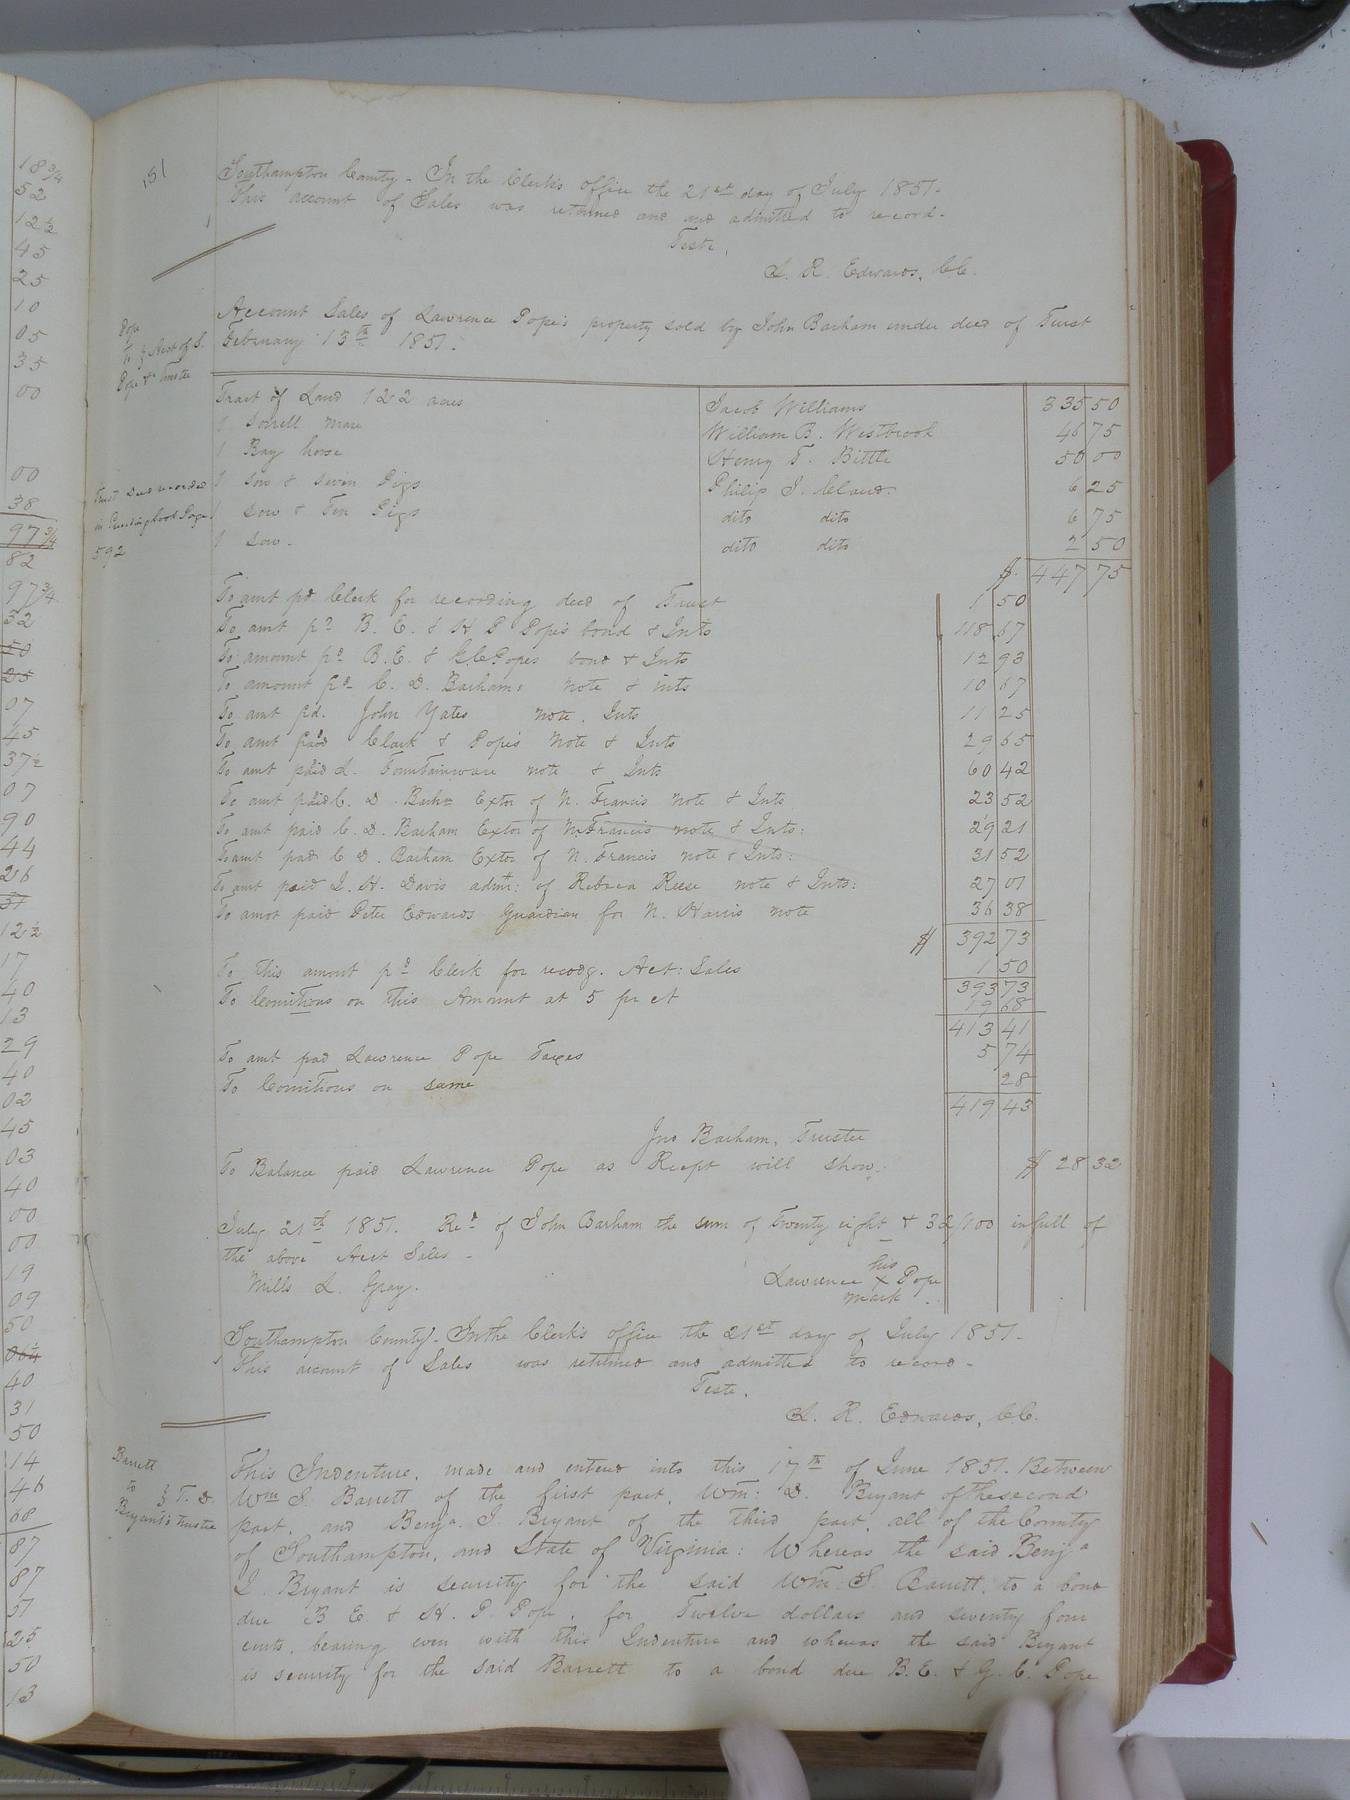 151
Southampton County - In the Clerk's office the 21st day of July 1851.
This account of Sales was returned and and admitted to record -
Teste,
L. R. Edwards, CC.
Account Sales of Lawrence Pope's property sold by John Barham under deed of Trust
February 13th 1851.
Pope
To } Acct of S.
Pope &c Trustee
Trust Deed recorded
in Preceding book Page
592
Tract of Land 122 acres Jacob Williams 335 50
1 Sorrell mare William B. Westbrook 46 75
1 Bay horse Henry T. Bittle 50 00
1 sow & seven Pigs Philip J. Claud. 6 25
1 sow & Ten Pigs dito dito 6 75
1 sow - dito dito 2 50
$ 447 75
To amt pd Clerk for recording deed of Trust 1 50
To amt pd B. E. & H P Pope's bond & Ints 118 67
To amount pd B. E. & G. C Popes bond & Ints 12 93
To amount pd C. D. Barhams note & ints 10 67
To amt pd. John Yates note, Ints 11 25
To amt paid Clark & Pope's note & Ints 29 65
To amt paid L. Fountainware note & Ints 60 42
To amt paid C. D. Barhm Extor of N. Francis note & Ints 23 52
To amt paid C. D. Barham Extor of N. Francis note & Ints: 29 21
To amt paid C D. Barham Extor of N. Francis note & Ints: 31 52
To amt paid J. H. Davis admr: of Rebeca Reese note & Ints: 27 01
To amot paid Peter Edwards Guardian for N. Harris note 36 38
$ 392 73
To this amont pd Clerk for recodg. Act: Sales 1 50
393 73
To Comitions on this Amount at 5 pr ct 19 68
413 41
To amt pad Lawrence Pope Taxes 5 74
To Comitions on same 28
419 43
Jno Barham, Trustee
To Balance paid Lawrence Pope as Recept will show. $ 28 32
July 21th 1851. Recd of John Barham the sum of Twenty eight & 32/100 in full of
the above Acct Sales -
Mills L. Gray. Lawrence his X mark Pope
Southampton County - In the Clerk's office the 21st day of July 1851 -
This account of Sales was returned and admitted to record -
Teste,
L. R. Edwards, C.C.
Barrett
to } T. D.
Bryant's Trustee
This Indenture, made and entered into this 17th of June 1851. Between
Wm S. Barrett of the first part, Wm: D. Bryant of the second
part, and Benja. J. Bryant of the third part, all of the County
of Southampton, and State of Virginia: Whereas the said Benja
J. Bryant is security for the said Wm S. Barrett, to a bond
due B E. & H. P. Pope, for Twelve dollars and seventy four
cents, bearing even with this Indenture and whereas the said Bryant
is security for the said Barrett to a bond due B. E. & G. C. Pope
18 3/4
52
12 1/2
45
25
10
05
35
00
00
38
97 3/4
82
97 3/4
32
50
25
07
45
37 1/2
07
90
44
26
31
12 1/2
17
40
13
29
40
02
45
03
40
00
00
19
09
50
40
31
50
14
46
68
87
87
57
25
50
13